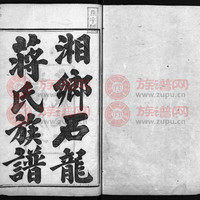 湘鄉石龍
蔣氏族譜
族譜网
www.zupu.cn
族譜网
www.zupu.cn